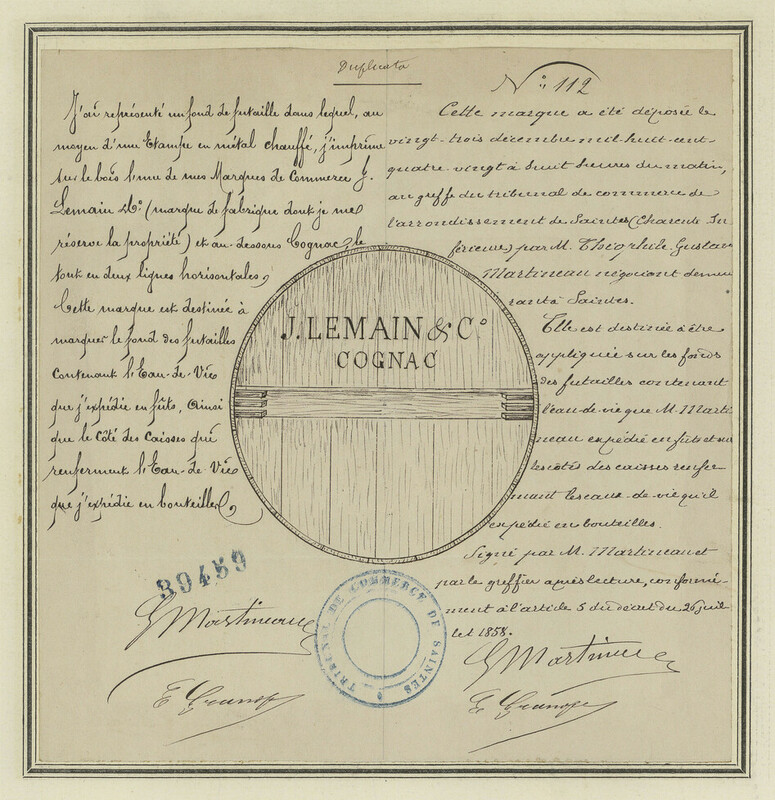 Duplicata
J'ai représenté un fond de futaille dans lequel, au
moyen d'une Etampe en métal chauffé, j'imprime
sur le bois l'une de mes Marques de Commerce J.
Lemain & Cº (marque de fabrique dont je me
réserve la propriété) et au-dessous Cognac, le
tout en deux lignes horisontales,
Cette marque est destinée à
marquer le fond des futailles
contenant l'Eau-de-Vie
que j'expédie en fûts, Ainsi
que le côté des Caisses qui
renferment l'Eau-de-Vie
que j'expédie en bouteilles,
39459
G Martineau
Nº 112
Cette marque a été déposée le
vingt-trois décembre mil-huit-cent-
quatre-vingt à huit heures du matin,
au greffe du tribunal de commerce de
l'arrondissement de Saintes (Charente In
férieure) par M. Théophile Gustave
Martineau négociant demeu
rant à Saintes.
Elle est destinée à être
appliquée sur les fonds
des futailles contenant
l'eau-de-vie que M. Marti
neau expédie en fûts et sur
les côtés des caisses renfer
mant les eaux-de-vie qu'il
expédie en bouteilles.
Signé par M. Martineau et
par le greffier après lecture, conformé-
ment à l'article 5 du décret du 26 juil-
let 1858.
G Martineau
J. LEMAIN & Cº
COGNAC
TRIBUNAL DE COMMERCE DE SAINTES